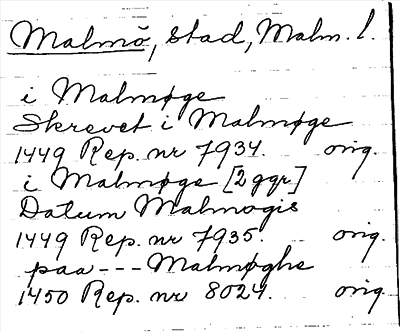 Malmö, stad, Malm. l.
i Malmøge
Skrevet i Malmøge
1449 Rep. nr 7934. orig.
i Malmøge [2 ggr]
Datum Malmogis
1449 Rep. nr 7935. orig.
paa --- Malmøghe
1450 Rep. nr 8024. orig.